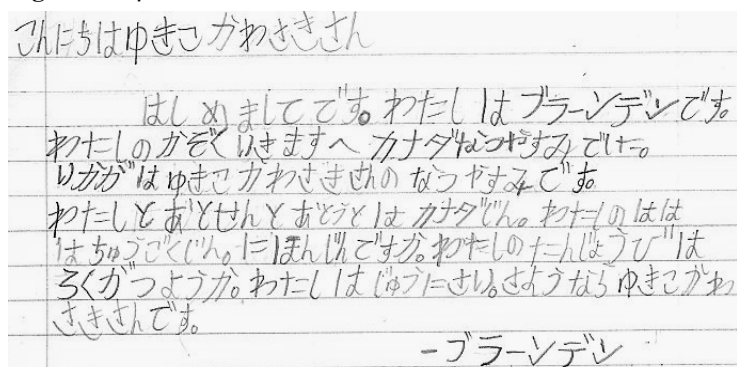 こんにちはゆきこかわさきさん
はじめましてです。わたしはブラーンデンです。
わたしのかぞくいきますへカナダなつやすみでした。
いかがはゆきこかわさきさんのなつやすみです。
わたしとおとせんとおとうとはカナダじん。わたしのはは
はちゅうごくじん。にほんじんですか。わたしのたんじょうび"は
ろくがつようか。わたしはじゅうにさい。さようならゆきこかわ
さきさんです。
-ブラーンデン